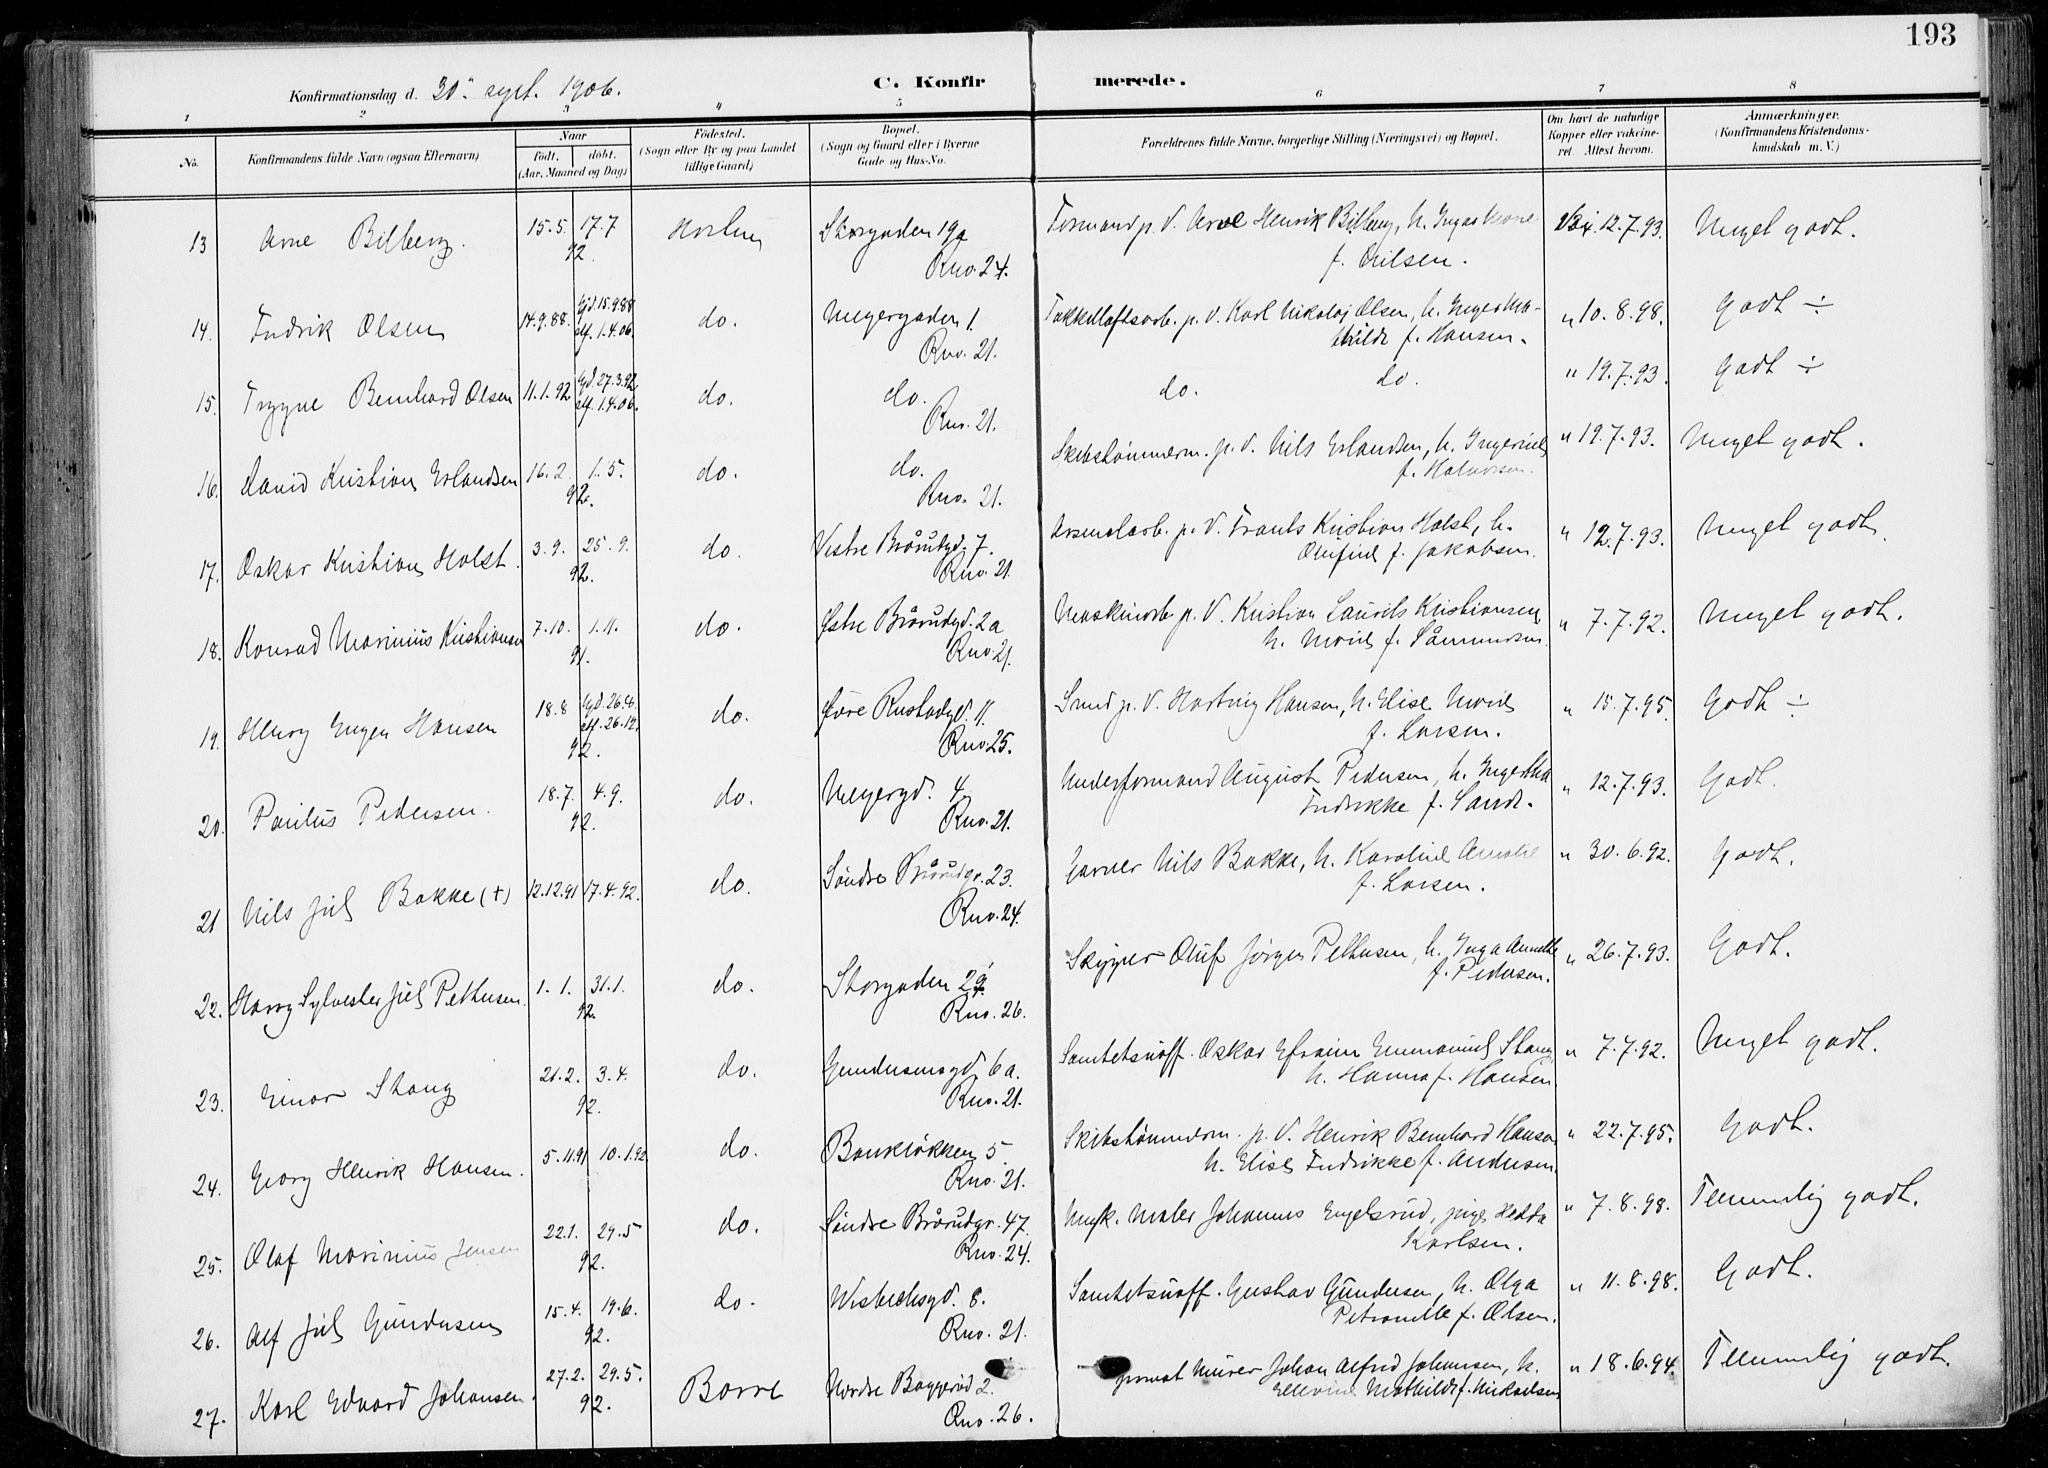 193
Konfirmationsdag d. 30. sept. 1906. C. Konfirmerede.
1 2 3 4 5 6 7 8
No. Konfirmandens fulde Navn (ogsaa Efternavn)
Naar født. døbt. (Aar, Maaned og Dag)
Fødested. (Sogn eller By og paa Landet tillige Gaard)
Bopæl. (Sogn og Gaard eller i Byerne Gade og Hus-No.
Forældrenes fulde Navne, borgerlige Stilling (Næringsvei) og Bopæl.
Om havt de naturlige Kopper eller vakcineret. Attest herom.
Anmærkninger. (Konfirmandens Kristendomskundskab m. V.)
13 Arne Bilberg. 15.5. 17.7 Horten Storgaden 19a Formand p. V. Arne Henrik Bilberg, h. f. Nilsen. 12.7.93. Meget godt.
92. Rno. 24.
14. Fredrik Olsen 14.9.88. Gjd. 15.9.88 do. Meyergaden 1. p. V. Karl Nikolaj Olsen, h. f. Hansen. " 10.8.98. Godt ÷
1.4.06. Rno. 21.
15. Trygve Bernhard Olsen 11.1.92 Gjd. 27.3.92 do. do. do. do. " 19.7.93. Godt ÷
1.4.06. Rno. 21.
16. David Kristian Erlandsen 16.2. 1.5. do. do. Skibstømmerm. p. V. Nils Erlandsen, h. f. Halvorsen. " 19.7.93. Meget godt.
92. Rno. 21.
17. Oskar Kristian Holst. 3.9. 25.9. do. Vestre Brårudgd. 7. Arsenalarb. p. V. Frants Kristian Holst, h.
92. Rno. 21. Olufine f. Jakobsen. " 12.7.93. Meget godt.
18. Konrad Marinius Kristiansen 7.10. 1.11. do. Østre Brårudgd. 2a Maskinarb. p. V. Kristian Laurits Kristiansen,
91. Rno. 21. h. Marie f. Såmundsen. " 7.7.92. Meget godt.
19. Henry Eugen Hansen 18.8 do. Øvre Rustadgd. 11. Smed p. V. Hartvig Hansen, h. Elise Marie
92. Rno 25. f. Larsen. " 15.7.95. Godt ÷
20. Paulus Pedersen. 18.7. 4.9. do. Meyergd. 4. Underformand August Pedersen, h.
92. Rno. 21. Fredrikke f. Sande. " 12.7.93. Godt.
21 Nils Juel Bakke (+) 12.12.91 17.4.92. do. Søndre Brårudgr. 23. Garver Nils Bakke, h. Karoline Amalie
Rno. 24. f. Larsen. " 30.6.92. Godt.
22. Harry Sylvester Juel Pettersen. 1.1. 31.1. do. Storgaden 29 Skipper Oluf Jørgen Pettersen, h. Inga Annette
92. Rno. 26. f. Pedersen. " 26.7.93. Godt.
23. Einar Stang 21.2. 3.4. do. Gundersensgd. 6a. Oskar Efraim Emmanuel Stang,
92. Rno. 21. h. Hanna f. Hansen. " 7.7.92. Meget godt.
24. Georg Henrik Hansen. 5.11.91 10.1.92 do. Bankløkken 5. Skibstømmerm. p. V. Henrik Bernhard Hansen
Rno. 21. h. Elise Fredrikke f. Andersen. " 22.7.95. Godt.
25. Olaf Marinius Jensen 22.1. 29.5 do. Søndre Brårudgr. 47. Ungk. Maler Johannes Engelsrud, pige Hedda
92. Rno. 24. Karlsen. " 7.8.98. Temmelig godt.
26. Alf Juel Gundersen 15.4. 19.6. do. Wisbechsgd. 8. Gustav Gundersen, h. Olga
92. Rno. 21. Petronelle f. Olsen. " 11.8.98. Godt.
27. Karl Edvard Johansen. 27.2. 29.5. Borre Nordre Baggerød 2. Murer Johan Alfred Johansen, h.
92. Rno. 26. Mathilde f. Mikaelsen " 18.6.94. Temmelig godt.